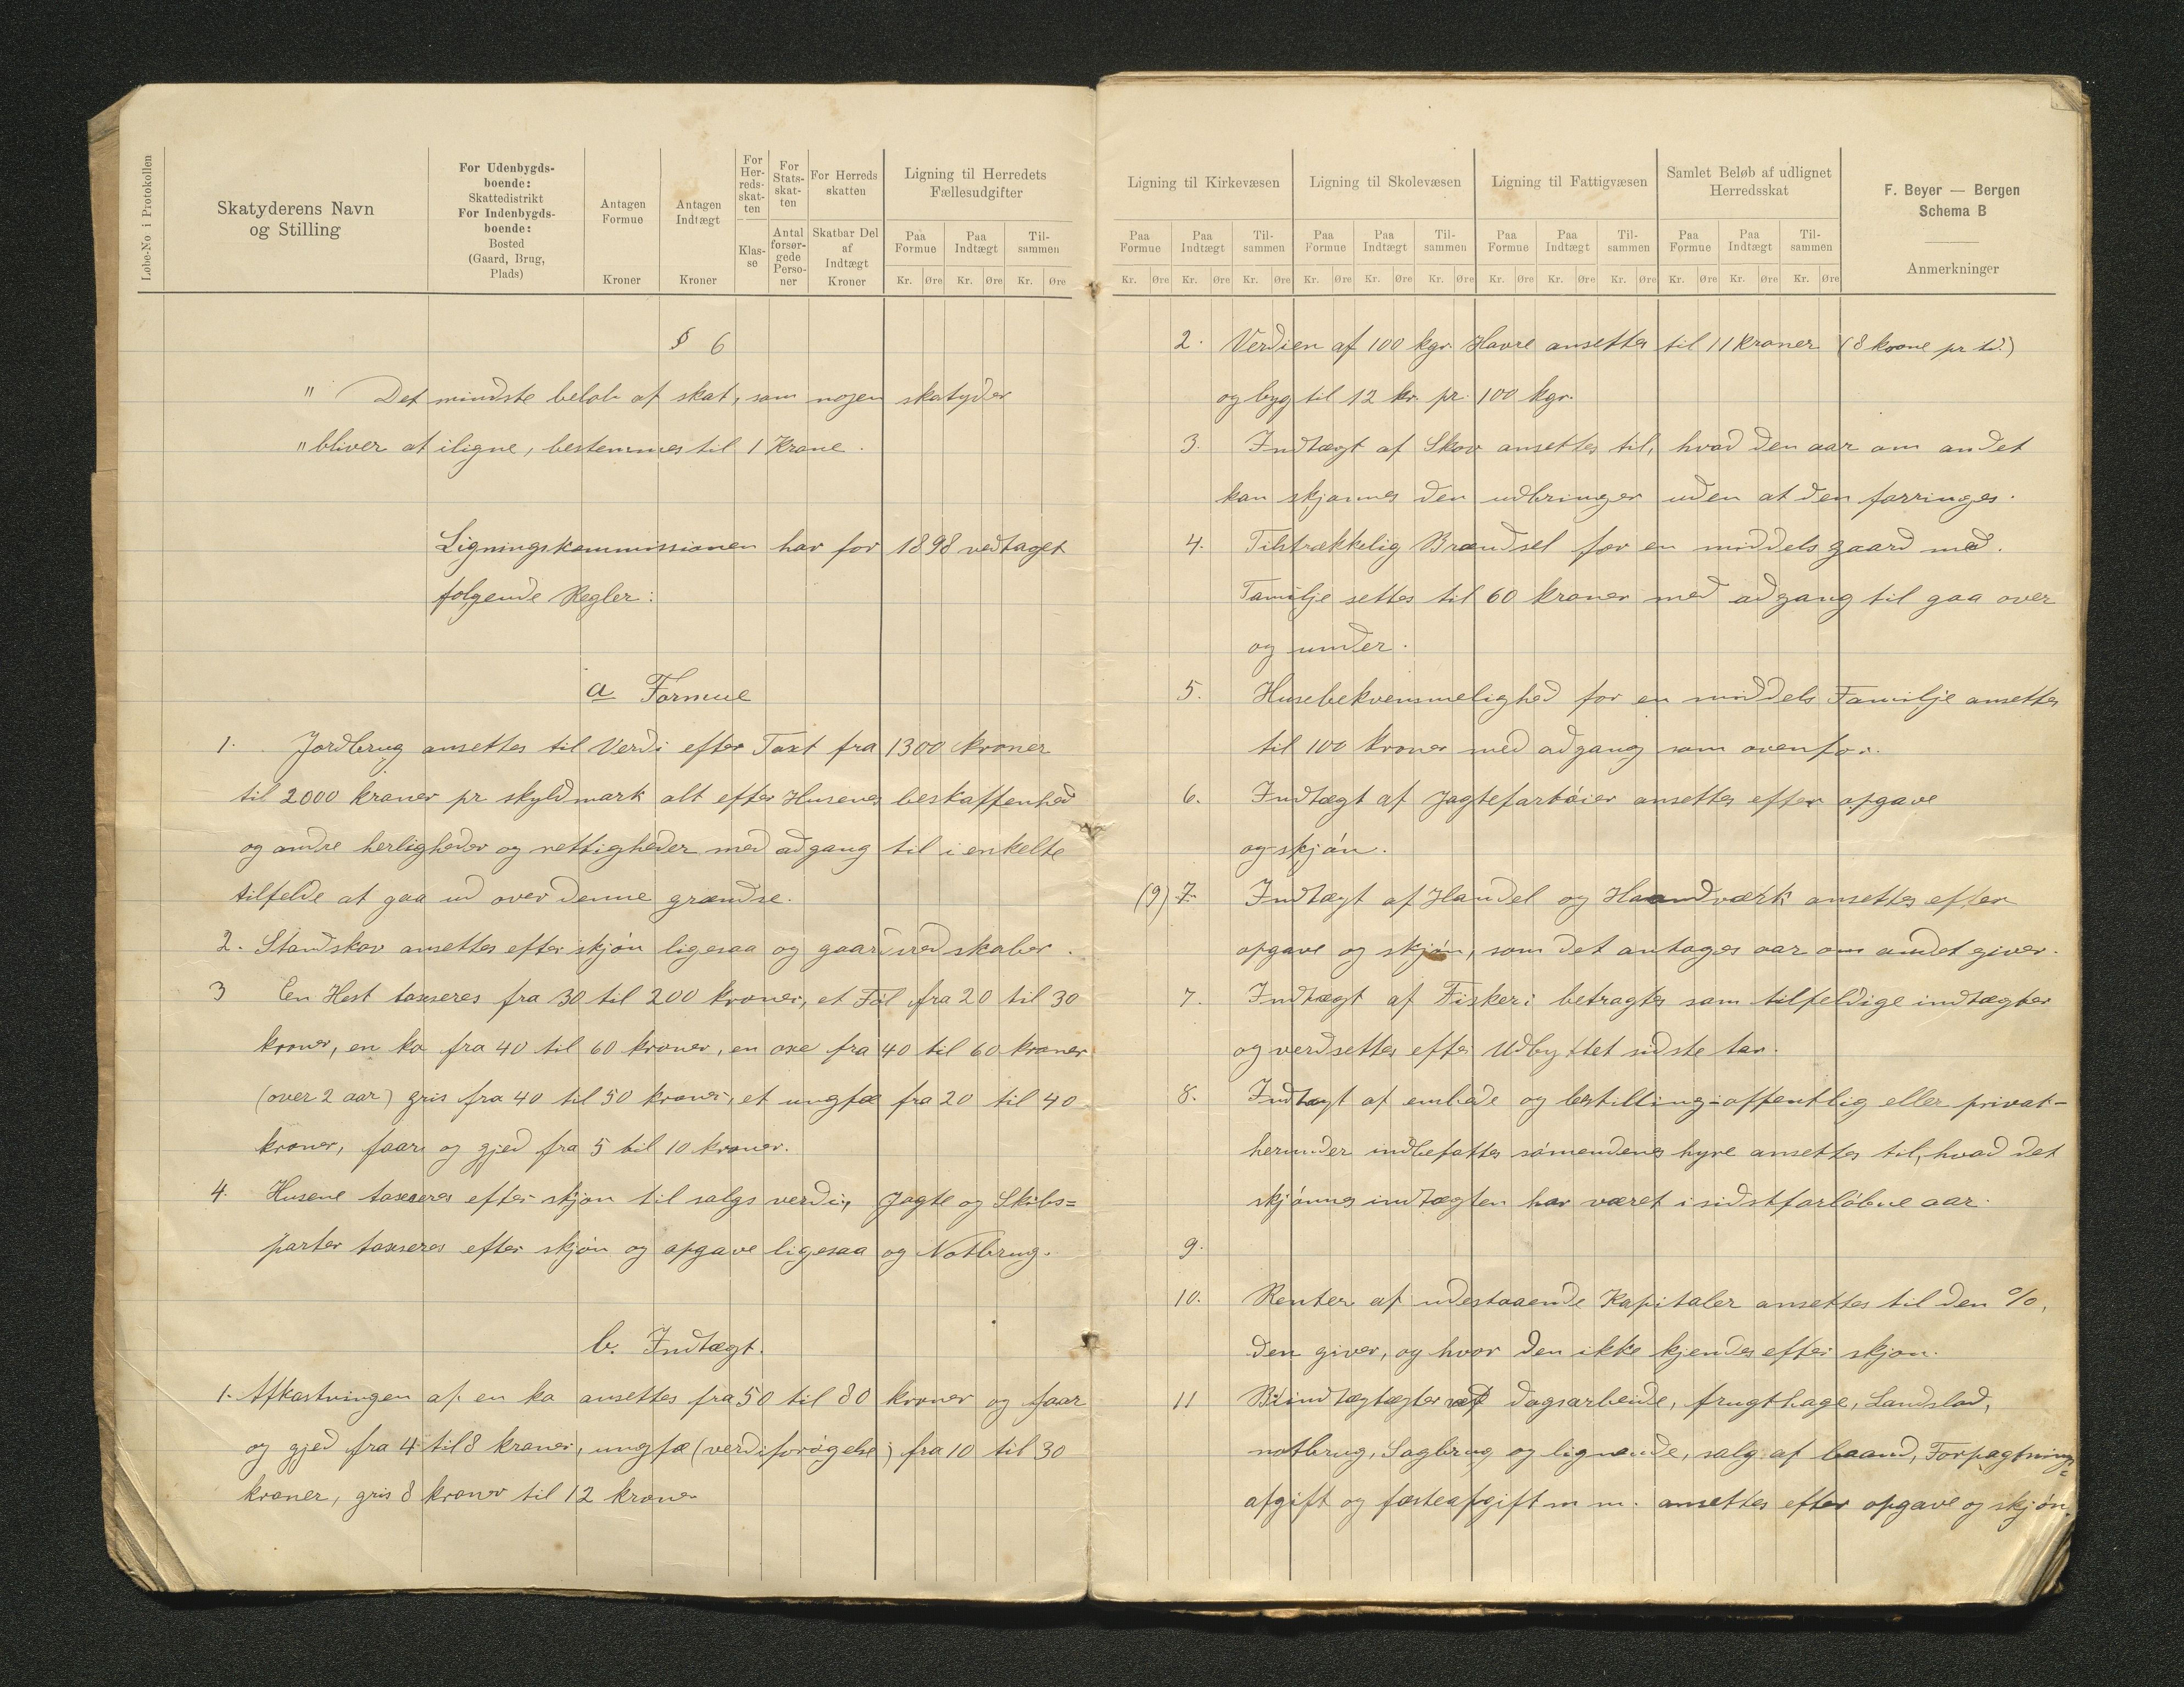 Løbe-No i Protokollen
Skatyderens Navn
og Stilling
For Udenbygds-
boende:
Skattedistrikt
For Indenbygds-
boende:
Bosted
(Gaard, Brug,
Plads)
Antagen
Formue
Kroner
Antagen
Indtægt
Kroner
For
Her-
reds-
skat-
ten
Klas-
se
For
Stats-
skat-
ten
Antal
forsør-
gede
Perso-
ner
For Herreds
skatten
Skatbar Del
af
Indtægt
Kroner
Ligning til Herredets
Fællesudgifter
Paa
Formue
Paa
Indtægt
Til-
sammen
Kr. Øre Kr. Øre Kr. Øre
§ 6
" Det mindste beløb af skat, som nogen skatyder
" bliver at iligne, bestemmes til 1 Krone.
Ligningskommissionen har for 1898 vedtaget
følgende Regler:
a Formue
1. Jordbrug ansettes til Verdi efter Taxt fra 1300 kroner
til 2000 kroner pr skyldmark alt efter Husenes beskaffenhed
og andre herligheder og rettigheder med adgang til i enkelte
tilfelde at gaa ud over denne grændse.
2. Standskov ansettes efter skjøn ligesaa og gaardsredskaber.
3 En Hest taxseres fra 30 til 200 kroner, et Føl fra 20 til 30
kroner, en ko fra 40 til 60 kroner, en oxe fra 40 til 60 kroner
(over 2 aar) gris fra 40 til 50 kroner, et ungfæ fra 20 til 40
kroner, faar og gjed fra 5 til 10 kroner.
4. Husene taxseres efter skjøn til salgs verdi, Jagte og Skibs=
parter taxseres efter skjøn og opgave ligesaa og Notbrug.
b. Indtægt.
1. Afkastningen af en ko ansettes fra 50 til 80 kroner og faar
og gjed fra 4 til 8 kroner, ungfæ (verdiforøgelse) fra 10 til 30
kroner, gris 8 kroner til 12 kroner
Ligning til Kirkevæsen
Paa
Formue
Paa
Indtægt
Til-
sammen
Kr. Øre Kr. Øre Kr. Øre
Ligning til Skolevæsen
Paa
Formue
Paa
Indtægt
Til-
sammen
Kr. Øre Kr. Øre Kr. Øre
Ligning til Fattigvæsen
Paa
Formue
Paa
Indtægt
Til-
sammen
Kr. Øre Kr. Øre Kr. Øre
Samlet Beløb af udlignet
Herredsskat
Paa
Formue
Paa
Indtægt
Til-
sammen
Kr. Øre Kr. Øre Kr. Øre
F. Beyer — Bergen
Schema B
Anmerkninger
2. Verdien af 100 kgr. Havre ansettes til 11 kroner (8 krone pr td.)
og byg til 12 kr. pr. 100 kgr.
3. Indtægt af Skov ansettes til, hvad den aar om andet
kan skjønnes den udbringer uden at den forringes.
4. Tilstrækkelig Brændsel for en middels gaard med.
Familje settes til 60 kroner med adgang til gaa over
og under.
5. Husebekvemmelighed for en middels Familje ansettes
til 100 kroner med adgang som ovenfor.
6. Indtægt af Jagtefartøier ansettes efter opgave
og skjøn.
(9) 7. Indtægt af Handel og Haandværk ansettes efter
opgave og skjøn, som det antages aar om andet giver.
7. Indtægt af Fiskeri betragtes som tilfeldige indtægter
og verdsettes efter Udbyttet sidste aar.
8. Indtægt af embede og bestilling - offentlig eller privat -
herunder indbefattes sømendenes hyre ansettes til, hvad det
skjønnes indtægten har været i sidstforløbne aar.
9.
10. Renter af udestaaende Kapitaler ansettes til den %,
den giver, og hvor den ikke kjendes efter skjøn.
11 Biindtægtægter ved dagsarbeide, frugthage, Landslod,
notbrug, Sagbrug og lignende, salg af baand, Forpagtnings=
afgift og fæsteafgift m m. ansettes efter opgave og skjøn.